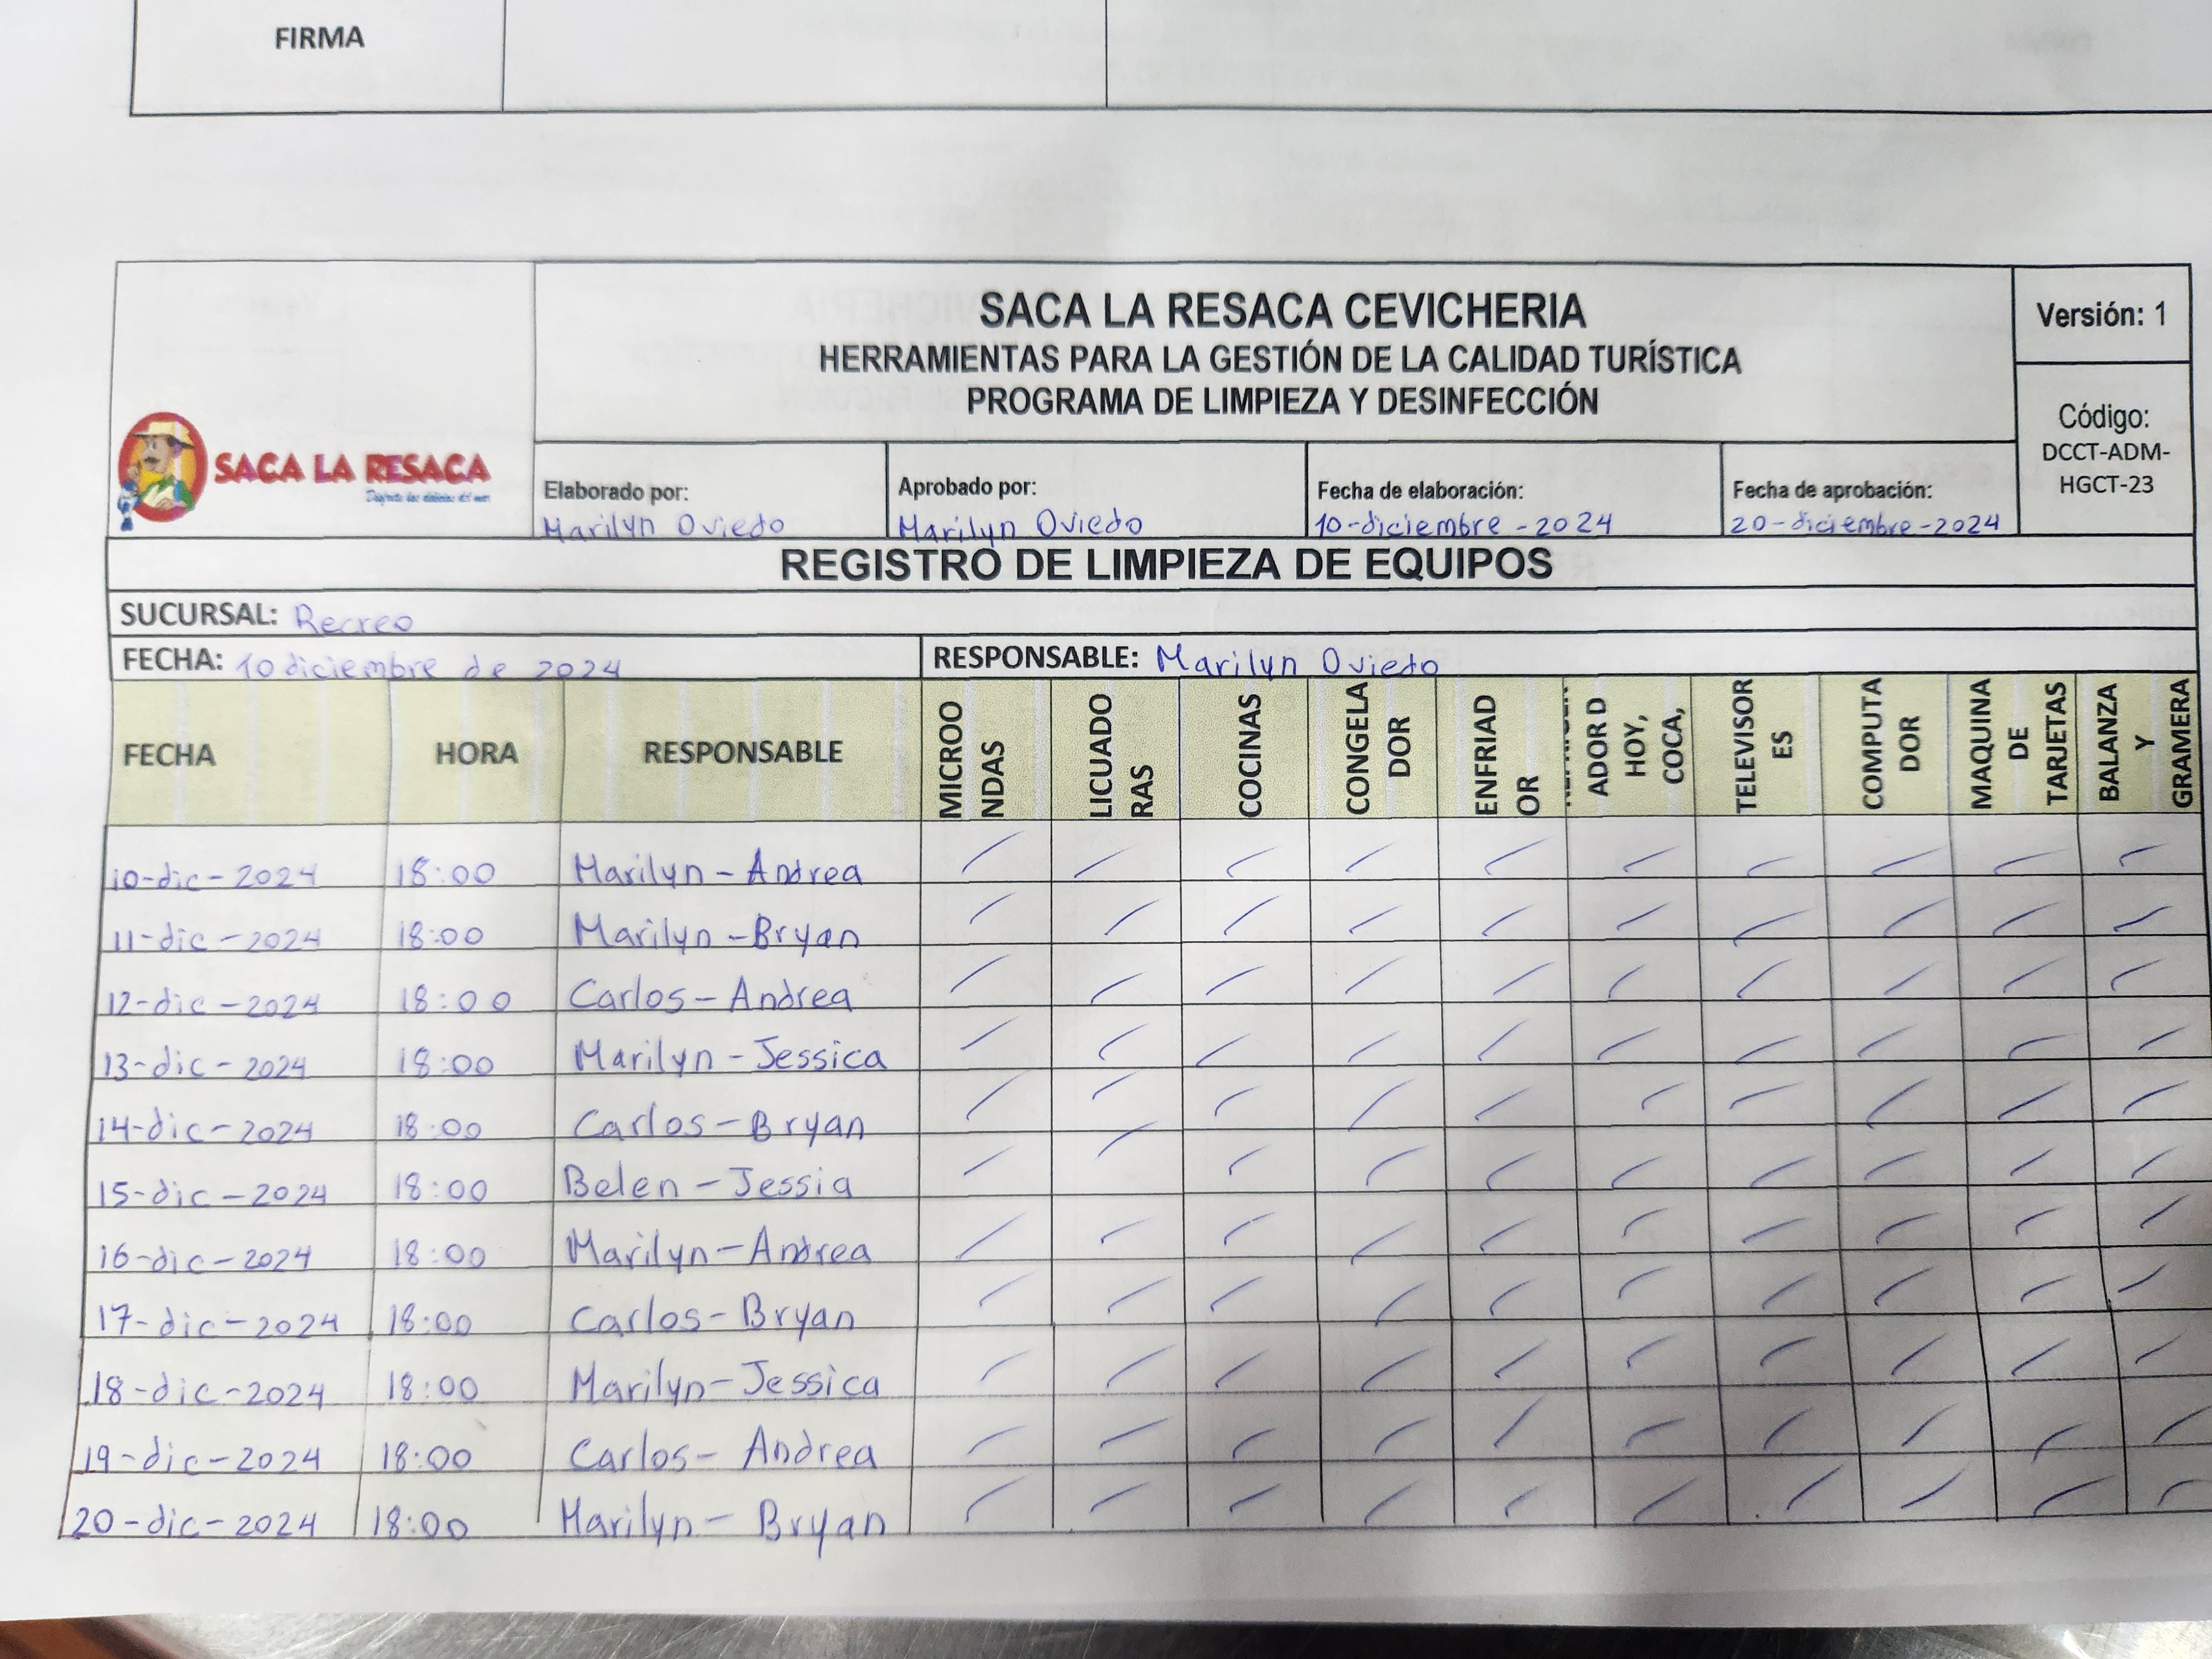 FIRMA
SACA LA RESACA CEVICHERIA
HERRAMIENTAS PARA LA GESTIÓN DE LA CALIDAD TURÍSTICA
PROGRAMA DE LIMPIEZA Y DESINFECCIÓN
Versión: 1
Código:
DCCT-ADM-
HGCT-23
SACA LA RESACA
Elaborado por:
Marilyn Oviedo
Aprobado por:
Marilyn Oviedo
Fecha de elaboración:
10-diciembre-2024
Fecha de aprobación:
20-diciembre-2024
REGISTRO DE LIMPIEZA DE EQUIPOS
SUCURSAL: Recreo
FECHA: 10 diciembre de 2024 RESPONSABLE: Marilyn Oviedo
FECHA HORA RESPONSABLE
MICROO
NDAS
LICUADO
RAS
COCINAS
CONGELA
DOR
ENFRIAD
OR
ADOR D
HOY,
COCA,
TELEVISOR
ES
COMPUTA
DOR
MAQUINA
DE
TARJETAS
BALANZA
Y
GRAMERA
10-dic-2024 18:00 Marilyn-Andrea
11-dic-2024 18:00 Marilyn-Bryan
12-dic-2024 18:00 Carlos-Andrea
13-dic-2024 18:00 Marilyn-Jessica
14-dic-2024 18:00 Carlos-Bryan
15-dic-2024 18:00 Belen-Jessia
16-dic-2024 18:00 Marilyn-Andrea
17-dic-2024 18:00 Carlos-Bryan
18-dic-2024 18:00 Marilyn-Jessica
19-dic-2024 18:00 Carlos-Andrea
20-dic-2024 18:00 Marilyn-Bryan